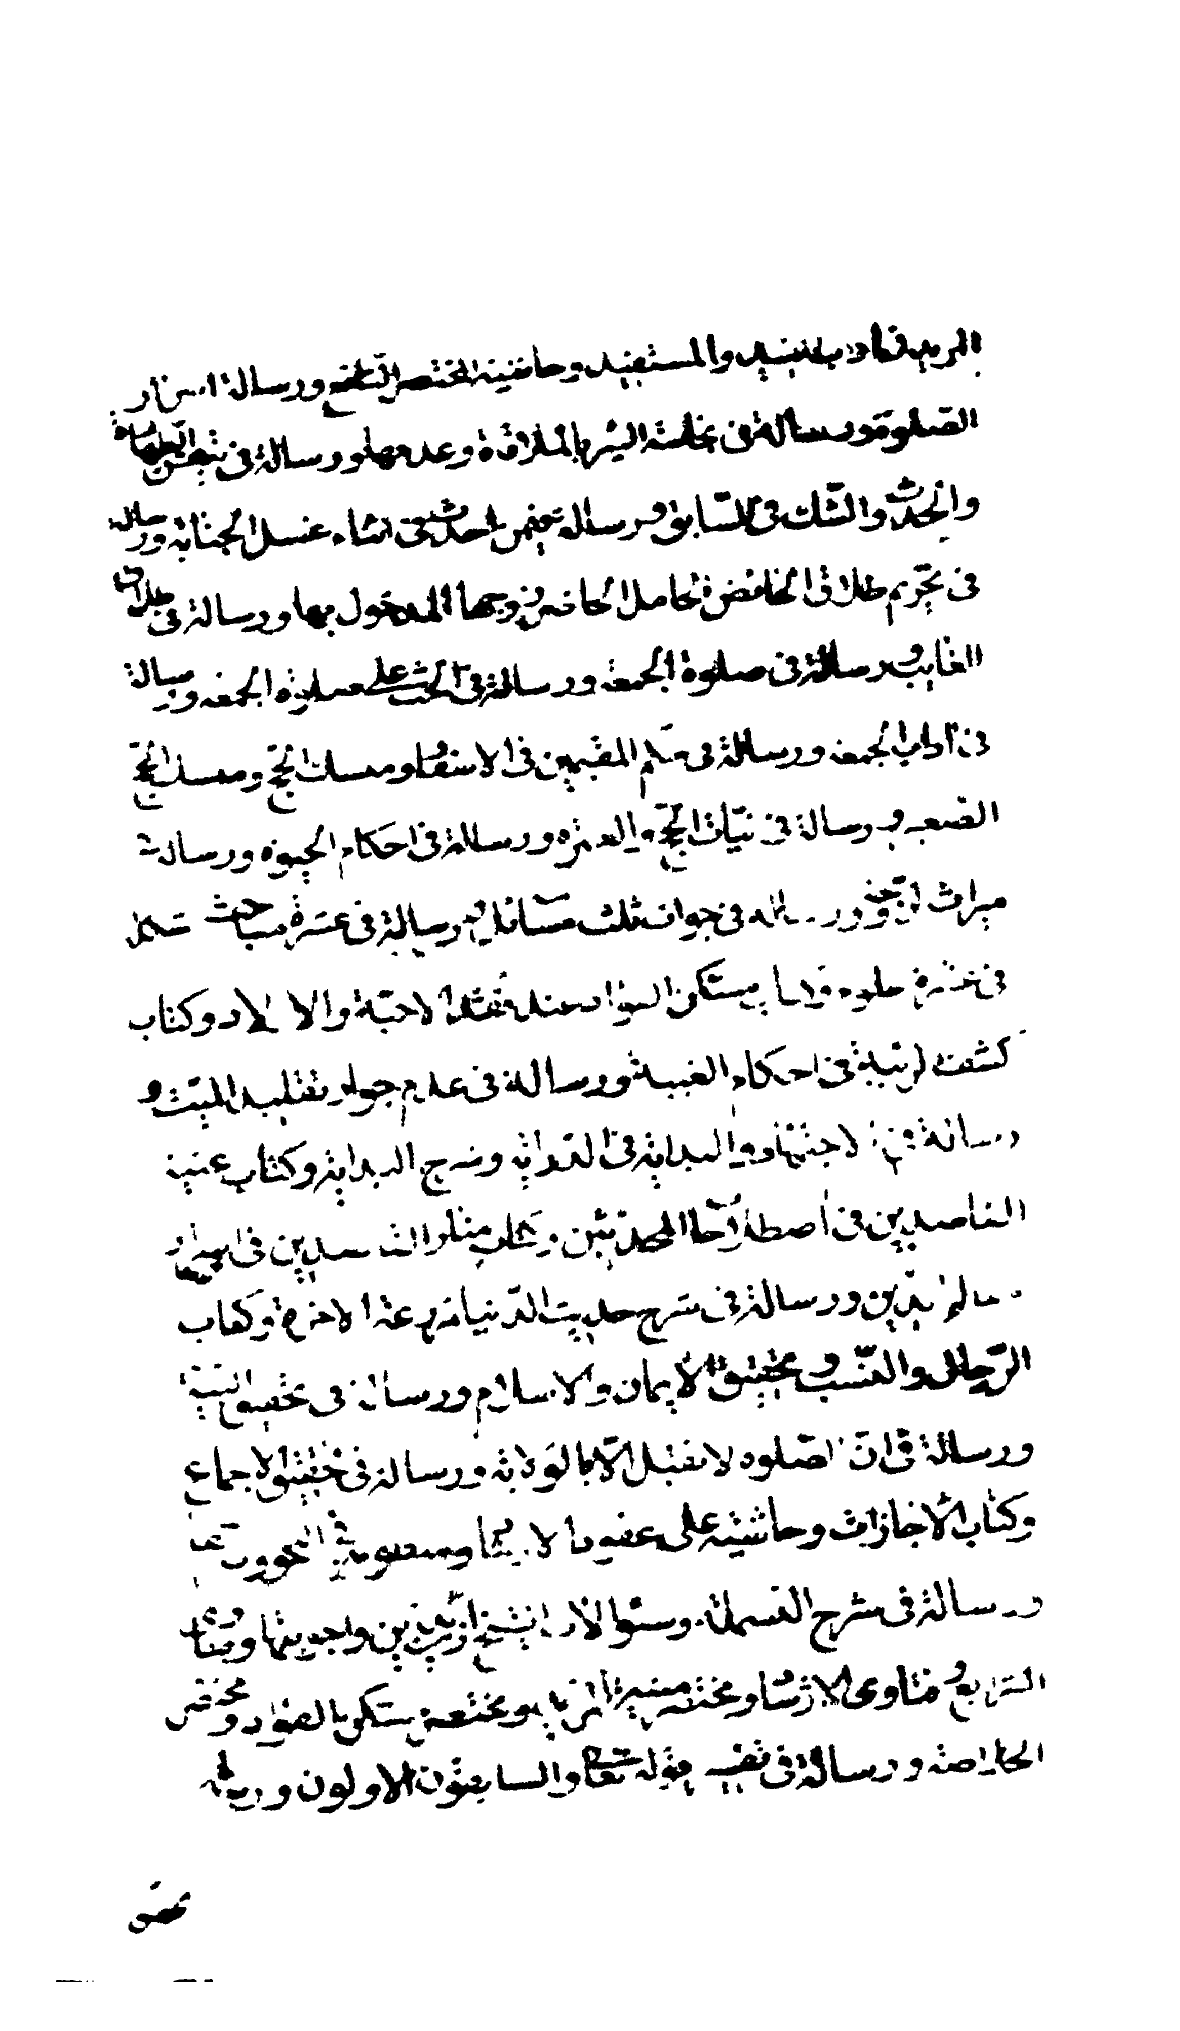 المريد فى آداب المفيد والمستفيد وحاشية المختصر النافع ورسالة اسرار
الصلوة ورسالة فى نجاسة البئر بالملاقاة وعدمها ورسالة فى تيقن الطهارة
والحدث والشك فى السابق ورسالة فيمن احدث فى اثناء غسل الجنابة ورسالة
فى تحريم طلاق الحائض الحامل الحاضر زوجها المدخول بها ورسالة فى طلاق
الغايب ورسالة فى صلوة الجمعة ورسالة فى الحث على صلوة الجمعة ورسالة
فى آداب الجمعة ورسالة فى حكم المقيمين فى الاسفار ومنسك الحج ومنسك الحج
الصغير ورسالة فى نيات الحج والعمرة ورسالة فى احكام الحبوة ورسالة
ميراث الزوجة ورسالة فى جواب ثلث مسائل ورسالة فى عشرة مباحث مشكلة
فى عشرة علوم ومسكن الفؤاد عند فقد الاحبة والاولاد وكتاب
كشف الريبة فى احكام الغيبة ورسالة فى عدم جواز تقليد الميت و
رسالة فى الاجتهاد والبداية فى الدراية وشرح البداية وكتاب غنية
القاصدين فى اصطلاحات المحدثين وكتاب منار القاصدين فى اسرار
معالم الدين ورسالة فى شرح حديث الدنيا مزرعة الاخرة وكتاب
الرجال والنسب وتحقيق الايمان والاسلام ورسالة فى تحقيق النية
ورسالة فى ان الصلوة لا تقبل الا بالولاية ورسالة فى تحقيق الاجماع
وكتاب الاجازات وحاشية على عقود الارشاد ومنظومة فى النحو وشرحها
ورسالة فى شرح البسملة وسؤالات الشيخ زين الدين واجوبتها وفتاوى
الشرايع وفتاوى الارشاد ومختصر منية المريد ومختصر مسكن الفؤاد ومختصر
الخلاصة ورسالة فى تفسير قوله تعالى والسابقون الاولون ورسالة